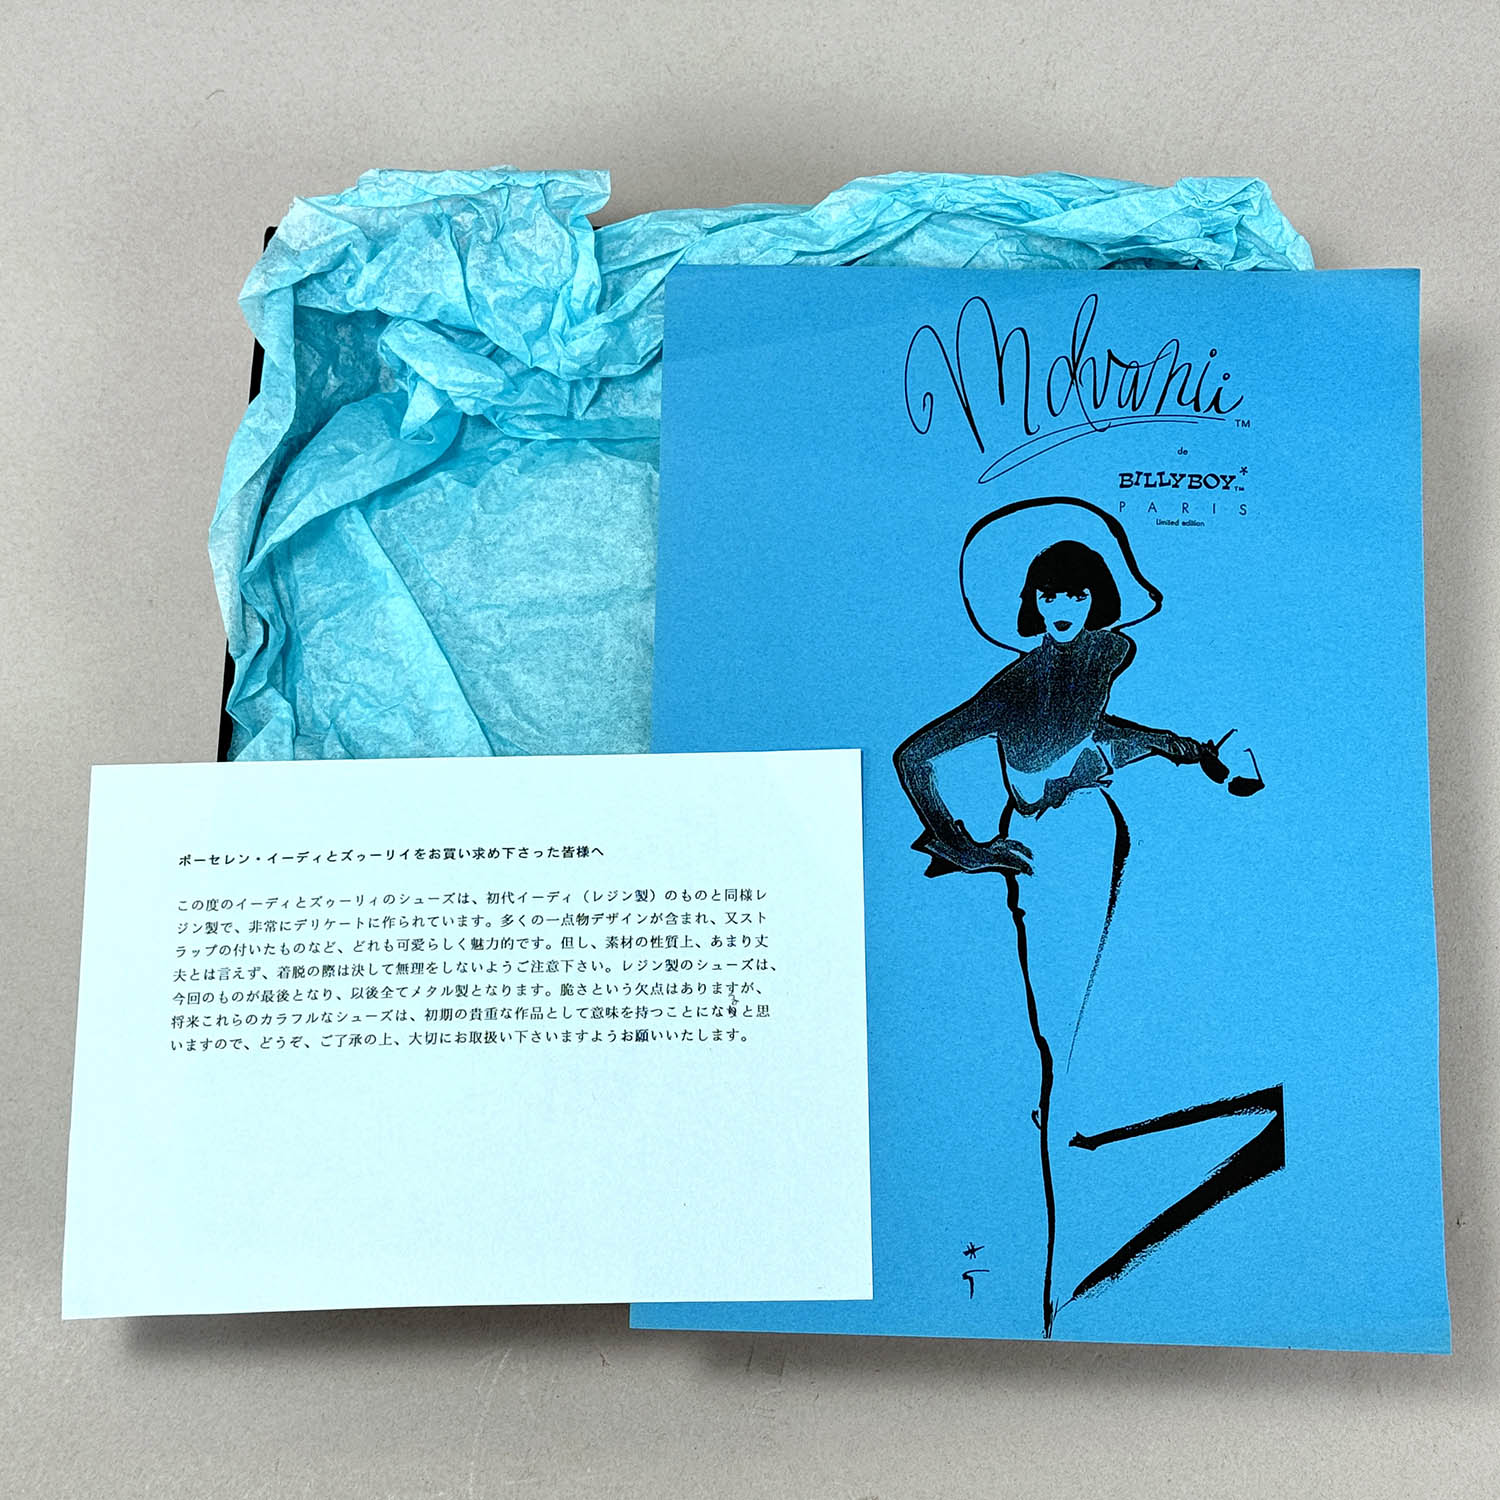 Mdvanii ™
de
BILLYBOY* ™
PARIS
Limited edition
ポーセレン・イーディとズゥーリイをお買い求め下さった皆様へ
この度のイーディとズゥーリィのシューズは、初代イーディ（レジン製）のものと同様レ
ジン製で、非常にデリケートに作られています。多くの一点物デザインが含まれ、又スト
ラップの付いたものなど、どれも可愛らしく魅力的です。但し、素材の性質上、あまり丈
夫とは言えず、着脱の際は決して無理をしないようご注意下さい。レジン製のシューズは、
今回のものが最後となり、以後全てメタル製となります。脆さという欠点はありますが、
将来これらのカラフルなシューズは、初期の貴重な作品として意味を持つことになると思
いますので、どうぞ、ご了承の上、大切にお取扱い下さいますようお願いいたします。